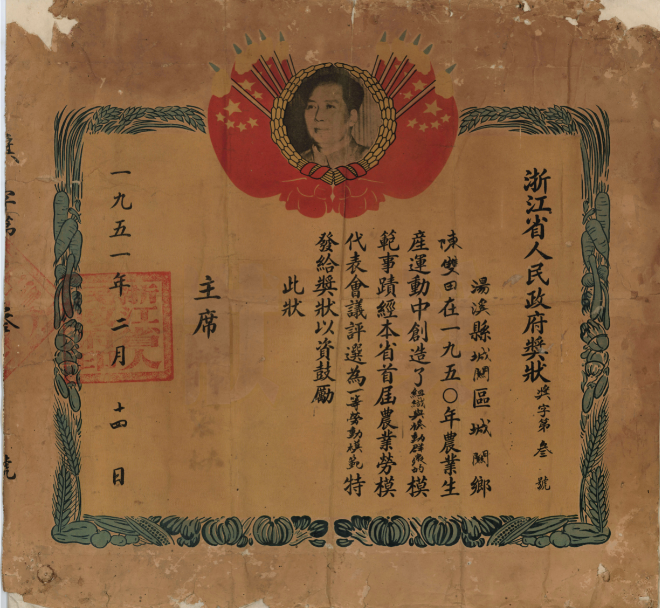 浙江省人民政府獎狀
獎字第叁號
湯溪縣城關區城關鄉
陳雙田在一九五〇年農業生
產運動中創造了組織與推動群衆的模
範事蹟經本省首屆農業勞模
代表會議評選為一等勞動模範特
發給獎狀以資鼓勵
此狀
主席
一九五一年二月十四日
字第叁號